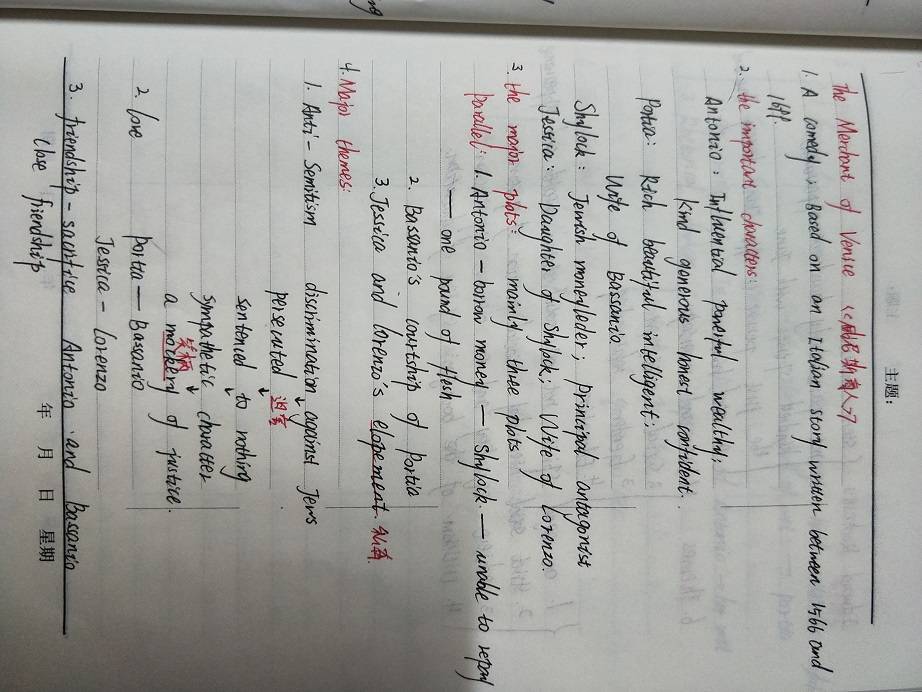 主题:
The Merchant of Venice 《威尼斯商人》
1. A comedy; Based on an Italian story written between 1566 and
1597.
2. the important characters:
Antonio: Influential powerful wealthy;
kind generous honest confident.
Portia: Rich beautiful intelligent;
Wife of Bassanio
Shylock: Jewish moneyleder; principal antagonist
Jessica: Daughter of Shylock; Wife of Lorenzo.
3. the major plots: mainly three plots
parallel: 1. Antonio - borrow money — Shylock — unable to repay
— one pound of flesh
2. Bassanio's courtship of Portia
3. Jessica and Lorenzo's elopement. 私奔.
4. Major themes:
1. Anti-Semitism discrimination against Jews
↓
persecuted 迫害
↓
sentenced to nothing
↓
sympathetic character
↓
笑柄
a mockery of justice.
2. love portia — Bassanio
Jessica - Lorenzo
3. friendship - sacrifice Antonio and Bassanio
close friendship
年 月 日 星期